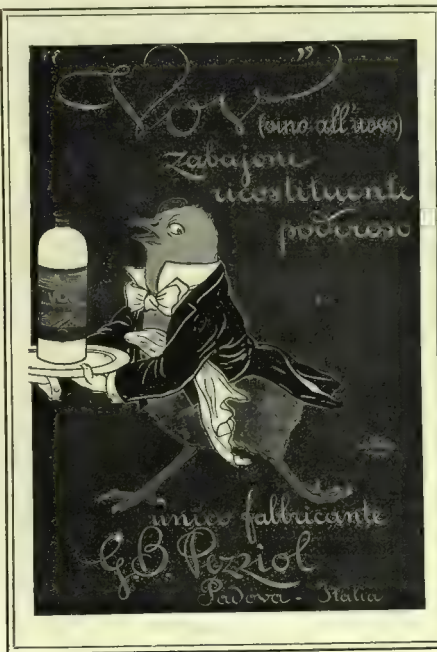 "Vov"
(vino all'uovo)
zabajone
ricostituente
poderoso
unico fabbricante
G.B Pezziol
Padova - Italia